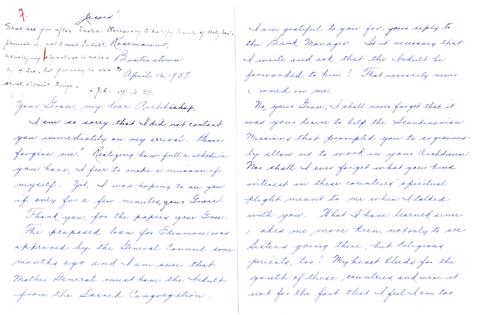 Jesus!
Rosemount,
Booterstown
April 16, 1957.
Your Grace, my dear Archbishop,
I am so sorry that I did not contact
you immediately on my arrival. Please
forgive me! Realizing how full a schedule
you have, I fear to make a nuisance of
myself. Yet, I was hoping to see you
if only for a few minutes, your Grace.
Thank you for the papers, your Grace.
The proposed loan for was
approved by the General Council some
months ago and I am sure that
Mother General must have the Indult
from the Sacred Congregation.
I am grateful to you for your reply to
the Bank Manager. Is it necessary that
I write and ask that the Indult be
forwarded to him? That necessity never
dawned on me.
No, your Grace, I shall never forget that it
was your desire to help the Scandinavian
Missions that prompted you to so gracious-
ly allow us to work in your Archdiocese
Nor shall I ever forget what your kind
interest in these countries' spiritual
plight meant to me when I talked
with you. What I have learned since
makes me more keen not only to see
Sisters going there, but religious
priests, too! My heart bleeds for the
youth of these countries and were it
not for the fact that I feel I am too